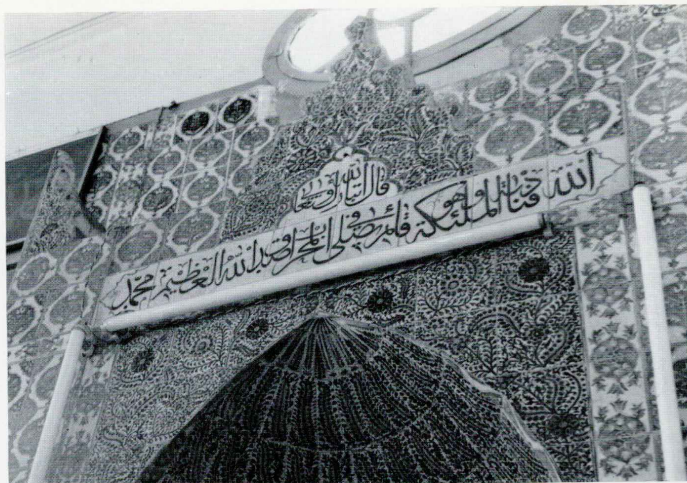 قال الله تبارك وتعالى
الله فنادته الملئكة وهو قائم يصلي في المحراب صدق الله العظيم محمد